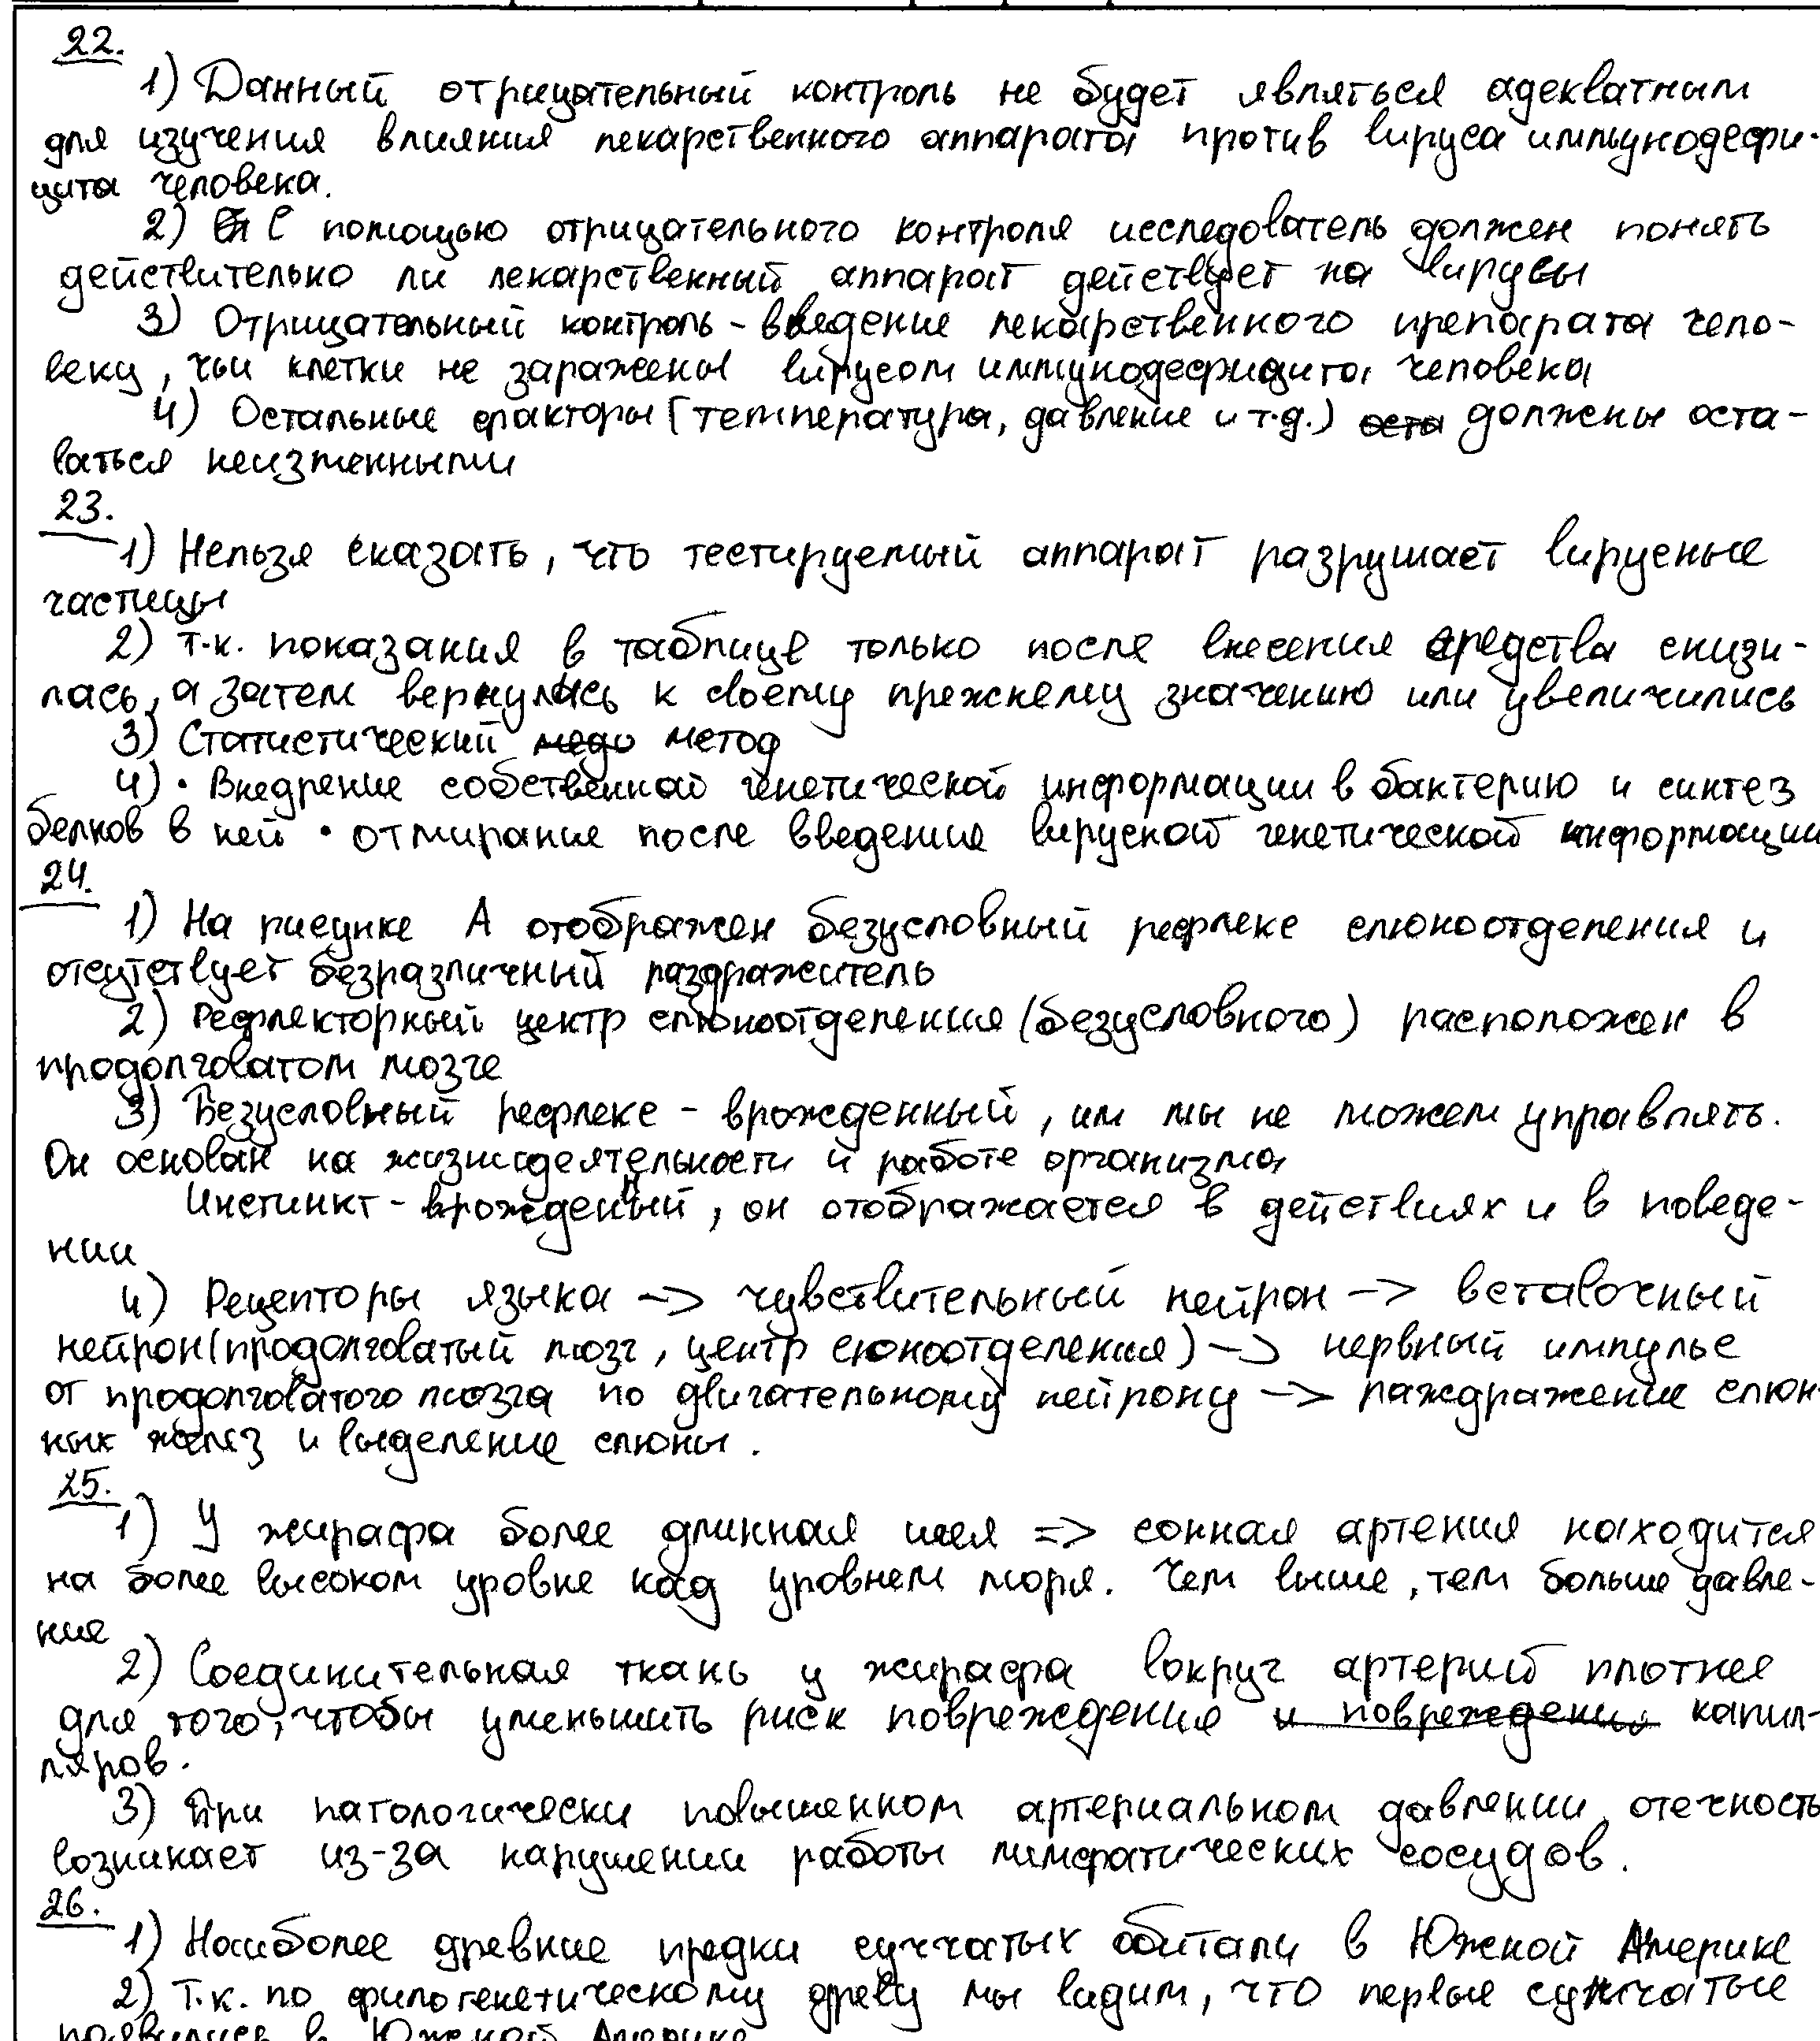 22.
1) Данный отрицательный контроль не будет являться адекватным
для изучения влияния лекарственного аппарата против вируса иммунодефи-
цита человека.
2) С помощью отрицательного контроля исследователь должен понять
действительно ли лекарственный аппарат действует на вирусы
3) Отрицательный контроль - введение лекарственного препарата чело-
веку, чьи клетки не заражены вирусом иммунодефицита человека
4) Остальные факторы (температура, давление и т.д.) должны оста-
ваться неизменными
23.
1) Нельзя сказать, что тестируемый аппарат разрушает вирусные
частицы
2) т.к. показания в таблице только после внесения средства снизи-
лась, а затем вернулись к своему прежнему значению или увеличились
3) Статистический метод
4) • Внедрение собственной генетической информации в бактерию и синтез
белков в ней • отмирание после введение вирусной генетической информации
24.
1) На рисунке А отображен безусловный рефлекс слюноотделения и
отсутствует безразличный раздражитель
2) Рефлекторный центр слюноотделения (безусловного) расположен в
продолговатом мозге
3) Безусловный рефлекс - врожденный, им мы не можем управлять.
Он основан на жизнидеятельности и работе организма
Инстинкт - врожденный, он отображается в действиях и в поведе-
нии
4) Рецепторы языка -> чувствительный нейрон -> вставочный
нейрон (продолговатый мозг, центр слюноотделения) -> нервный импульс
от продолговатого мозга по двигательному нейрону -> раждражение слюн-
ных желез и выделение слюны.
25.
1) У жирафа более длинная шея => сонная артения находится
на более высоком уровне над уровнем моря. Чем выше, тем больше давле-
ние
2) Соединительная ткань у жирафа вокруг артерий плотнее
для того, чтобы уменьшить риск повреждения и повреждения капил-
ляров.
3) При патологически повышенном артериальном давлении отечность
возникает из-за нарушении работы лимфатических сосудов.
26.
1) Наиболее древние предки сумчатых обитали в Южной Америке
2) Т.к. по филогенетическому древу мы видим, что первые сумчатые
появились в Южной Америке